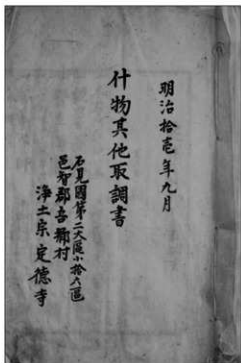 明治拾壱年九月
什物其他取調書
石見國第二大區小拾六區
邑智郡吾郷村
浄土宗定徳寺